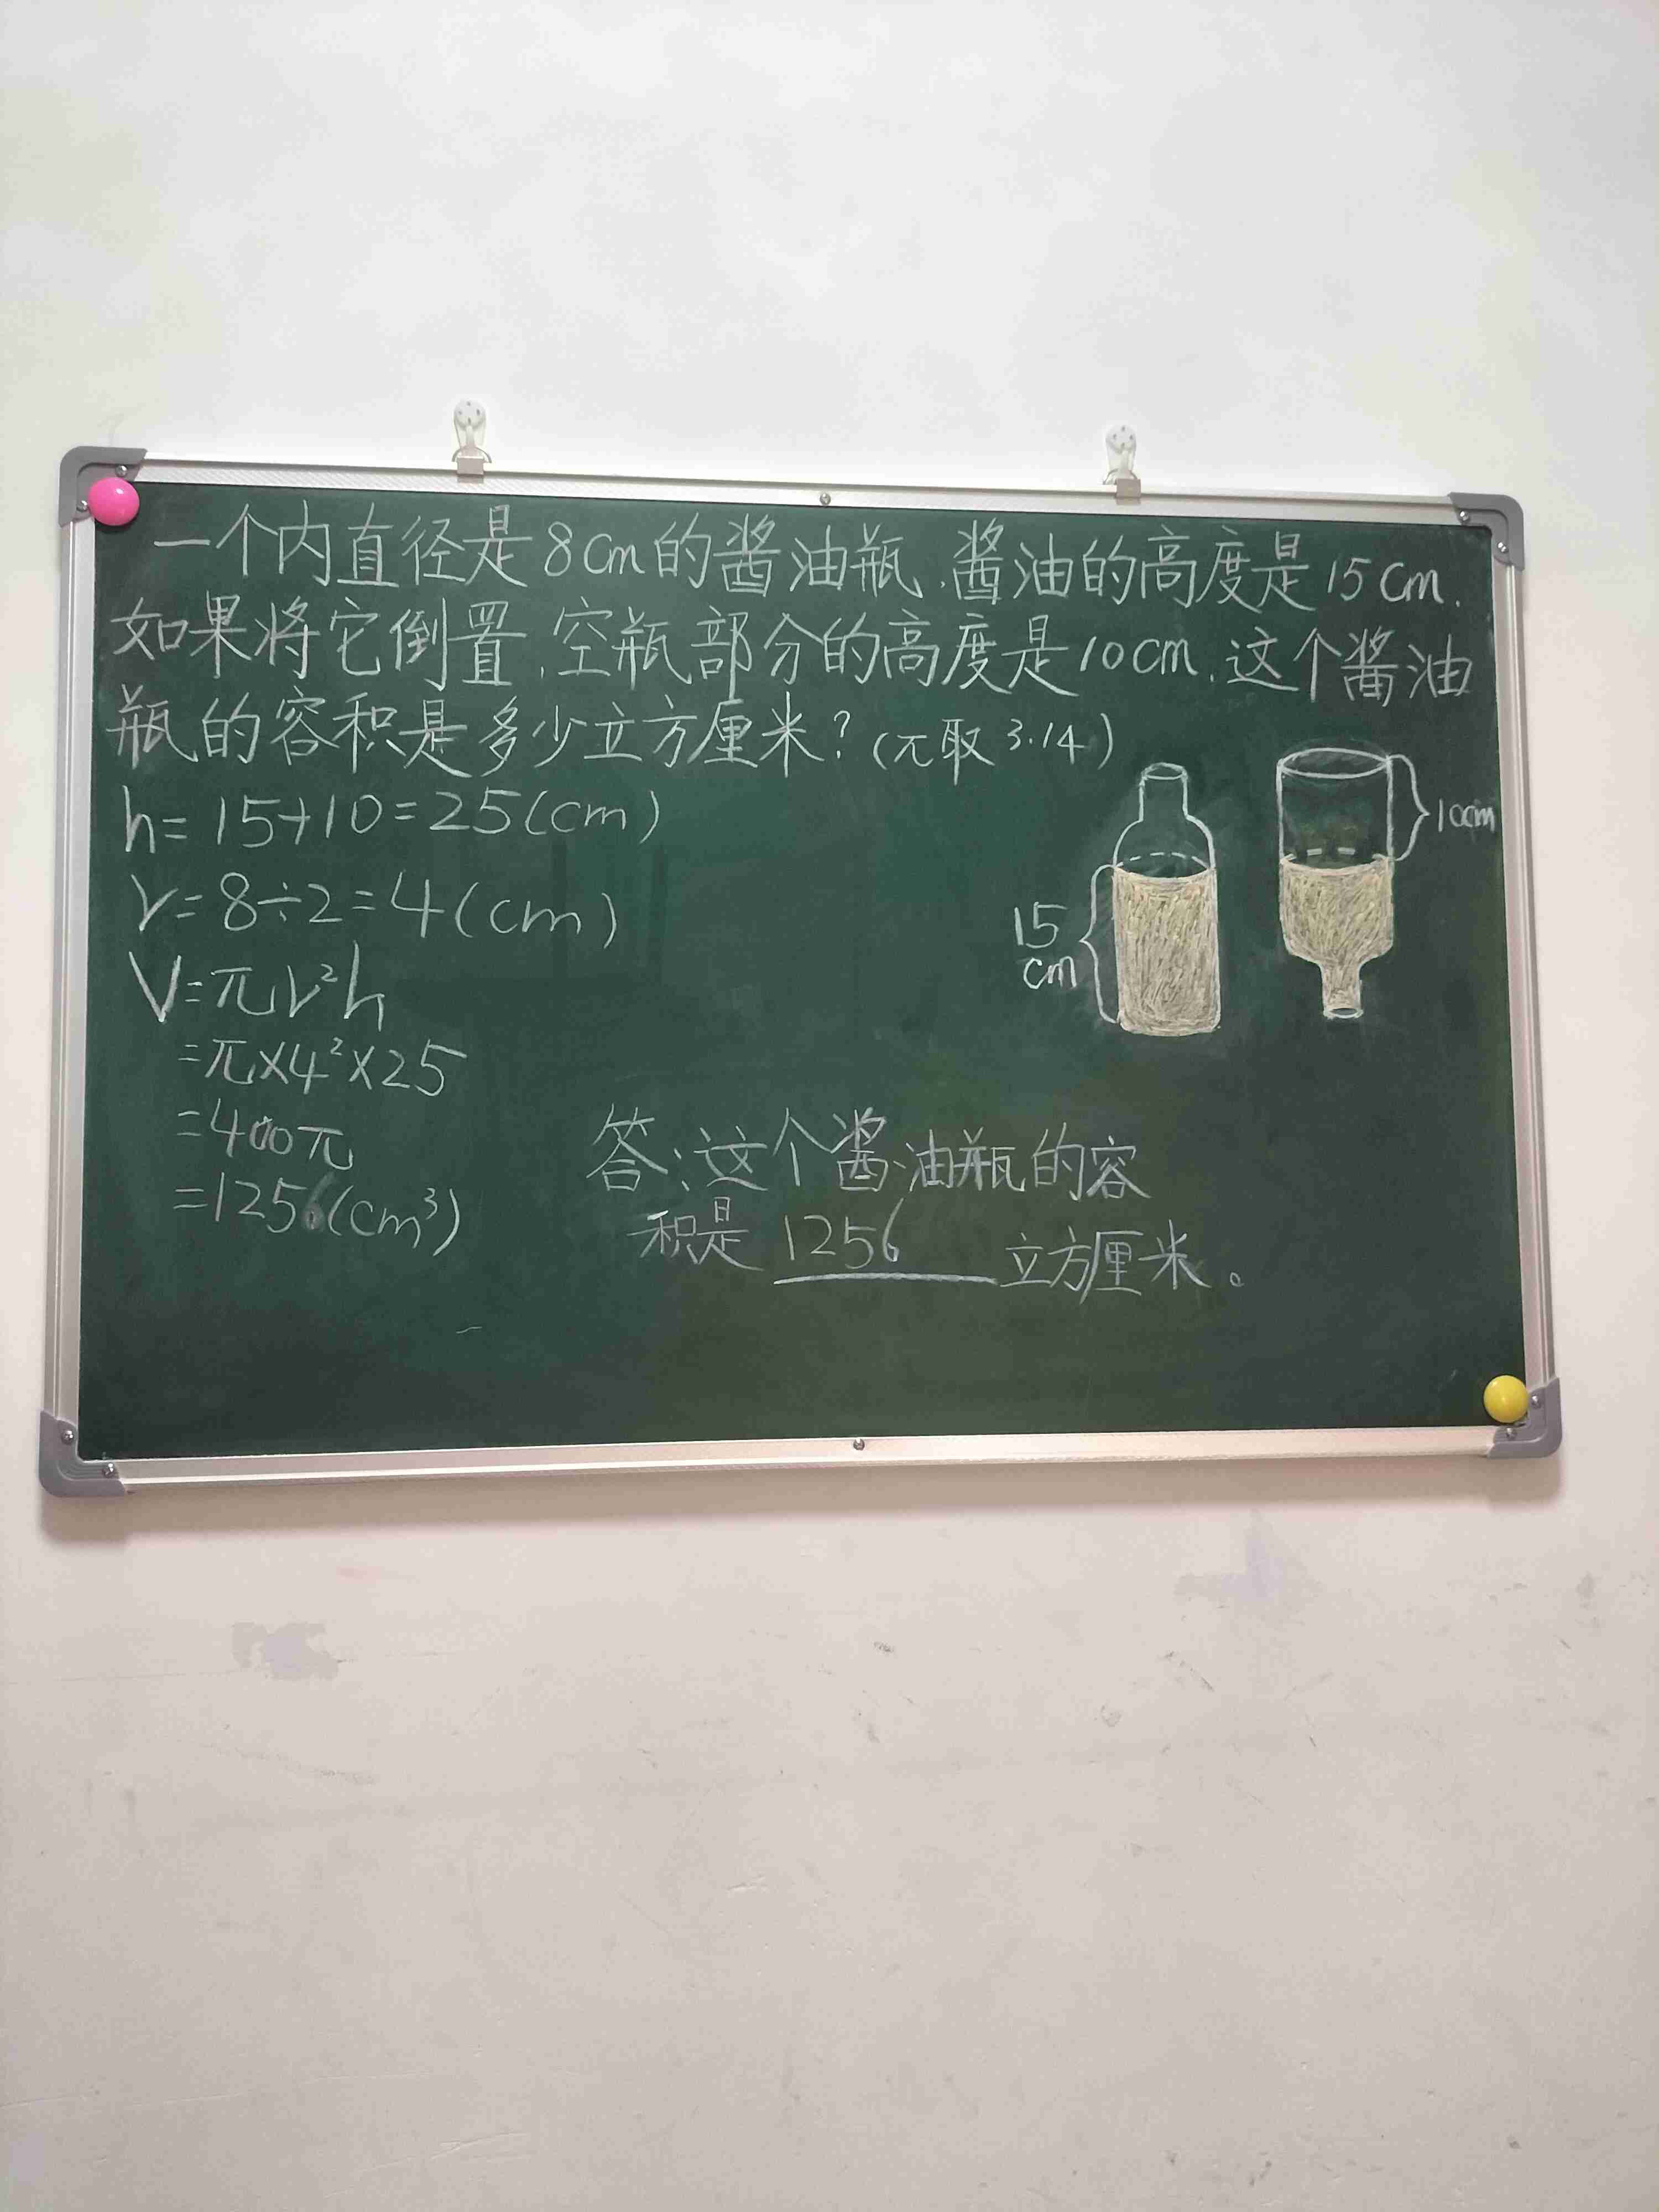 一个内直径是8cm的酱油瓶,酱油的高度是15cm.
如果将它倒置,空瓶部分的高度是10cm.这个酱油
瓶的容积是多少立方厘米?(π取3.14)
h=15+10=25(cm)
r=8÷2=4(cm)
V=πr²h
=π×4²×25
=400π
=1256(cm³)
15
cm
10cm
答:这个酱油瓶的容
积是 1256 立方厘米。